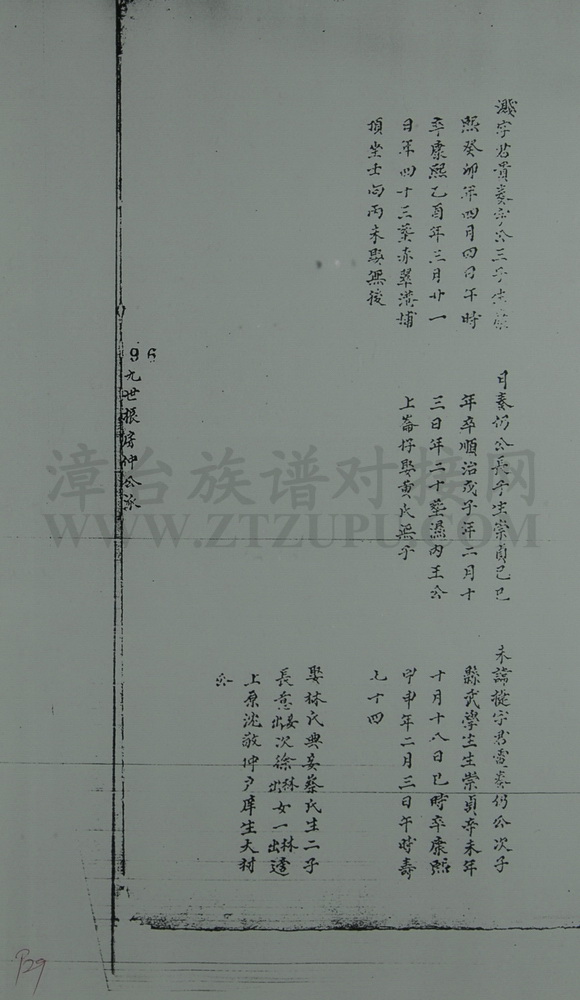 濺字君貴養字公三子生康
熙癸卯年四月四日午時
卒康熙乙酉年三月廿一
日年四十三葬赤翠溝埔
頂坐士向丙未娶無後
日養仍公長子生崇貞己巳
年卒順治戊子年二月十
三日年二十葬濕內王公
上崙仔娶黃氏無子
未諱摐字君雷養仍公次子
縣武學生生崇貞辛未年
十月十八日巳時卒康熙
甲申年二月三日午時壽
七十四
娶林氏典妾蔡氏生二子
長意妾出次徐林出女一林出遠
上原沈敬仲戶庠生大村
公
96
九世振房仲公派
漳台族谱对接网
WWW.ZTZUPU.COM
P29